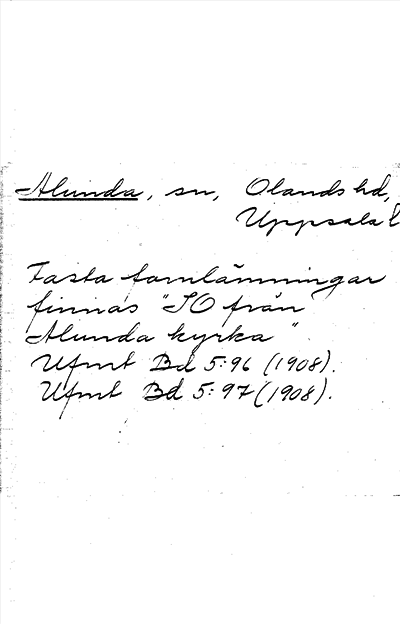 Alunda, sn, Olands hd,
Uppsala l
Fasta fornlämningar
finnas "SO från
Alunda kyrka".
Ufmt Bd 5:96 (1908).
Ufmt Bd 5:97 (1908).